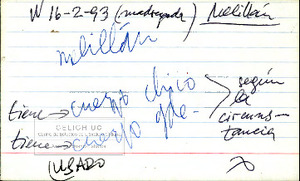 N 16-2-93 (madrugada) Melillán
melillán
tiene → cuerpo chico
tiene → cuerpo gde.
según
la
circuns-
tancia
CELICH UC
(USADO)